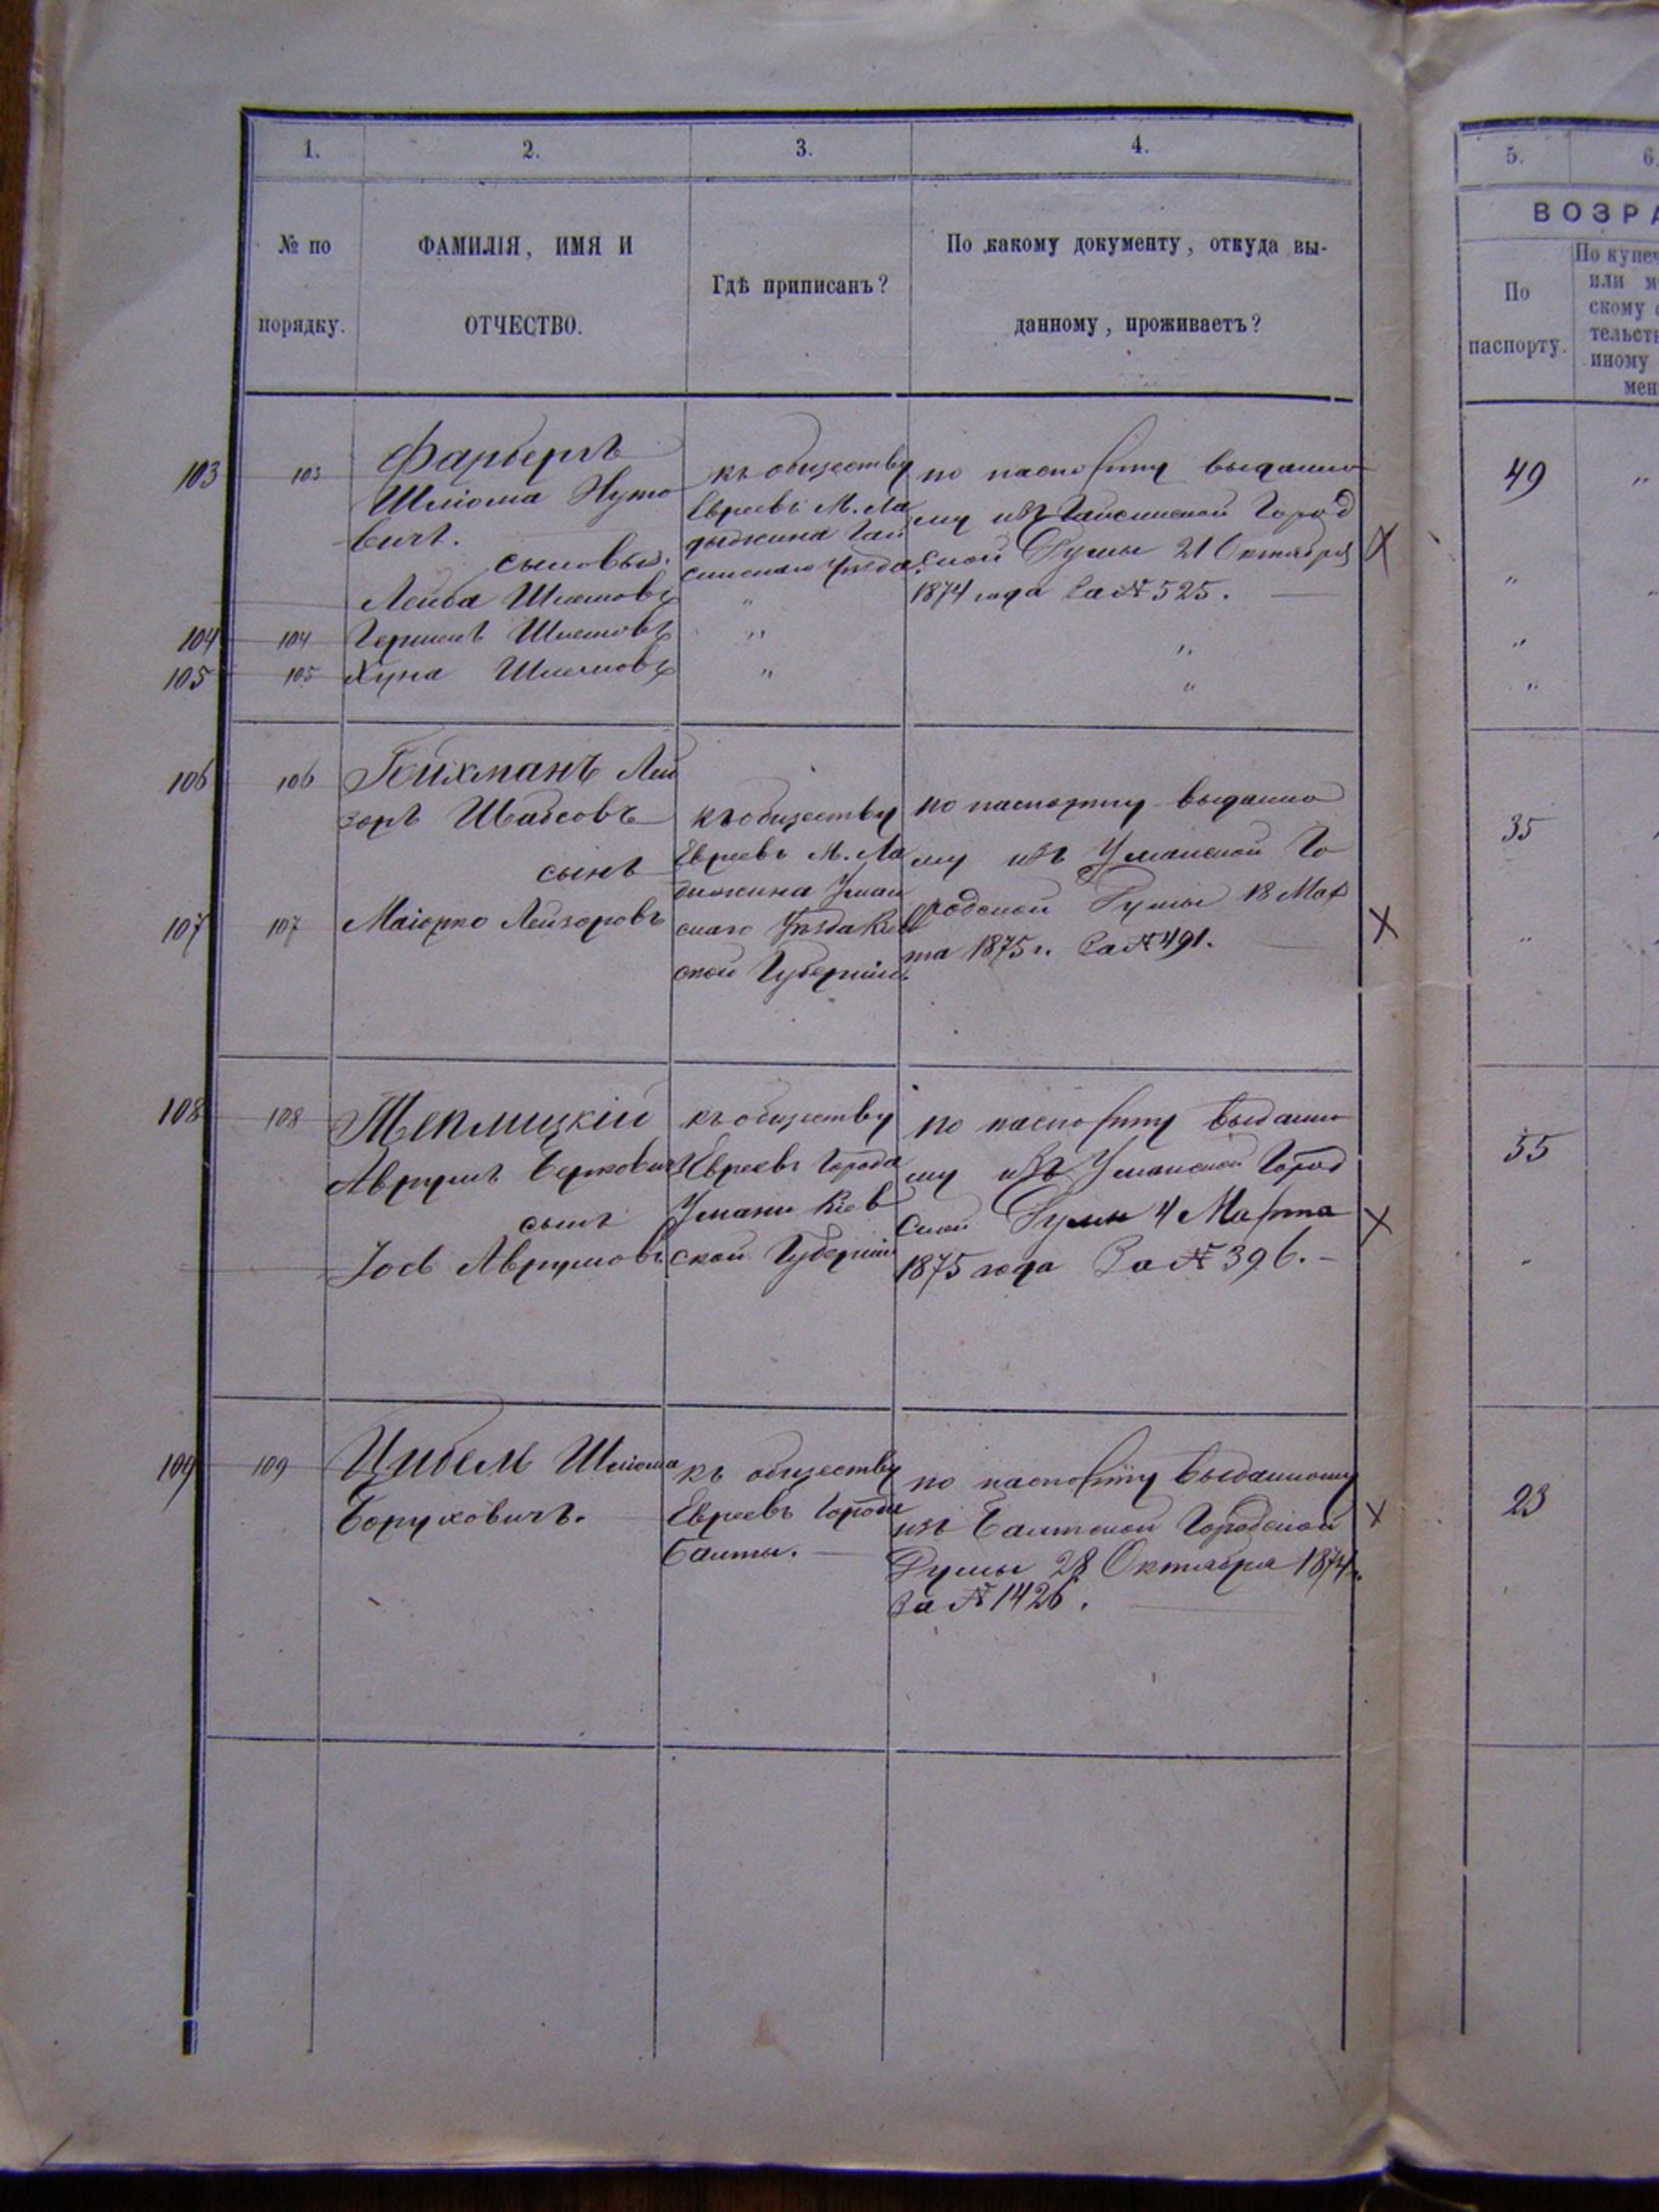 1. 2. 3. 4. 5. 6.
№ по порядку.
ФАМИЛІЯ, ИМЯ И
ОТЧЕСТВО.
Гдѣ приписанъ?
По какому документу, откуда вы-
данному, проживаетъ?
ВОЗРА
По
паспорту.
По купеч
или м
скому с
тельств
иному
мен
103 103
Фарберъ
Шліома Нуто
вичъ.
сыновья.
Лейба Шлемовъ
104 104 Гершель Шлемовъ
105 105 Хуна Шлемовъ
къ обществу
Евреевъ М. Ла
дыжина Гай
синскаго Уѣзда.
"
"
"
по паспорту выданно
му изъ Гайсинской Город
ской Думы 21 Октября
1874 года За № 525.
"
"
X
49
"
"
"
"
106 106
Гейхманъ Лей
зоръ Шабсовъ
сынъ
107 107 Маіорко Лейзоровъ
къ обществу
Евреевъ М. Ла
дыжина Уман
скаго Уѣзда Кіев
ской Губерніи
по паспорту выданно
му изъ Уманской Го
родской Думы 18 Мар
та 1875 г. За № 491.
X
35
"
108 108
Теплицкій
Аврумъ Берковичъ
сынъ
Іос Аврумовъ
къ обществу
Евреевъ Города
Умани Кіев
ской Губерніи
по паспорту выданно
му изъ Уманской Город
ской Думы 4 Марта
1875 года За № 396.-
X
55
"
109 109
Цибель Шліома
Боруховичъ.
къ обществу
Евреевъ Города
Балты.
по паспорту выданному
изъ Балтской Городской
Думы 28 Октября 1874 г.
За № 1426.
X
23